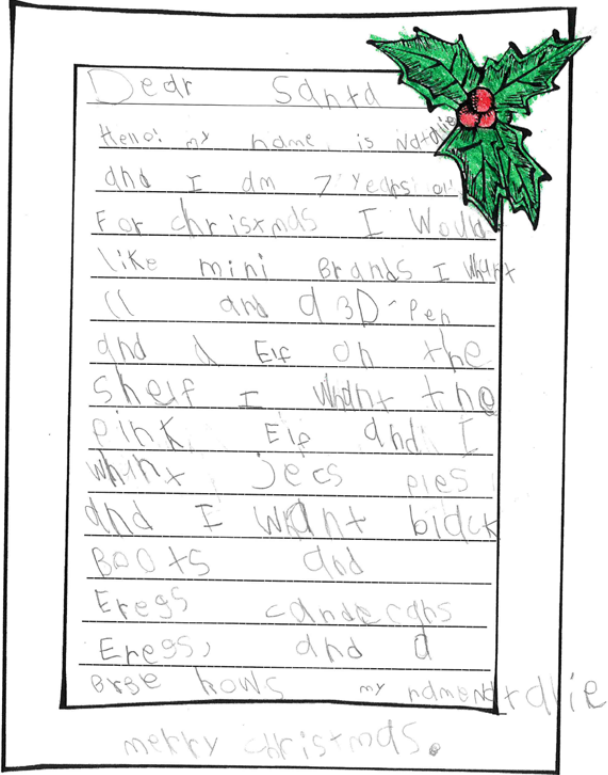 Dear Santa
Hello! my name is Natalie
and I am 7 years ol
For christmas I Would
like mini Brands I Whant
11 and a 3D-Pen
and a Elf on the
shelf I whant the
pink Elf and I
whant jecs ples
and I want black
Boots and
Eregs candecans
Eregs, and a
Brbe hows my name Natalie
merry christmas.